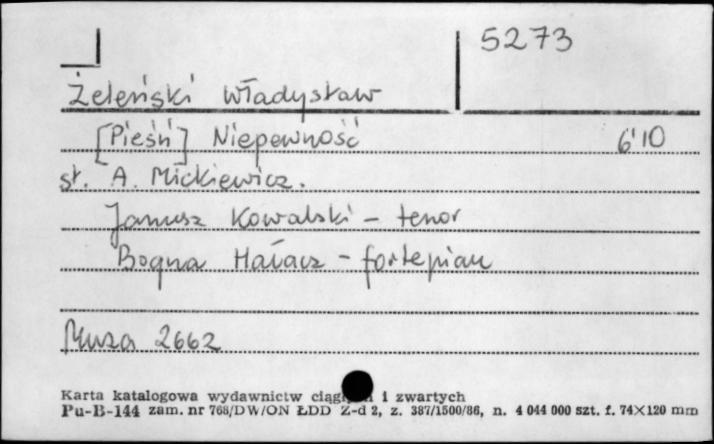 5273
Żeleński Władysław
[Pieśń] Niepewność 6'10
sł. A. Mickiewicz.
Janusz Kowalski – tenor
Bogna Hałacz – fortepian
Muza 2662
Karta katalogowa wydawnictw i zwartych
Pu-B-144 zam. nr 768/DW/ON ŁDD Z-d 2, z. 387/1500/86, n. 4 044 000 szt. f. 74×120 mm